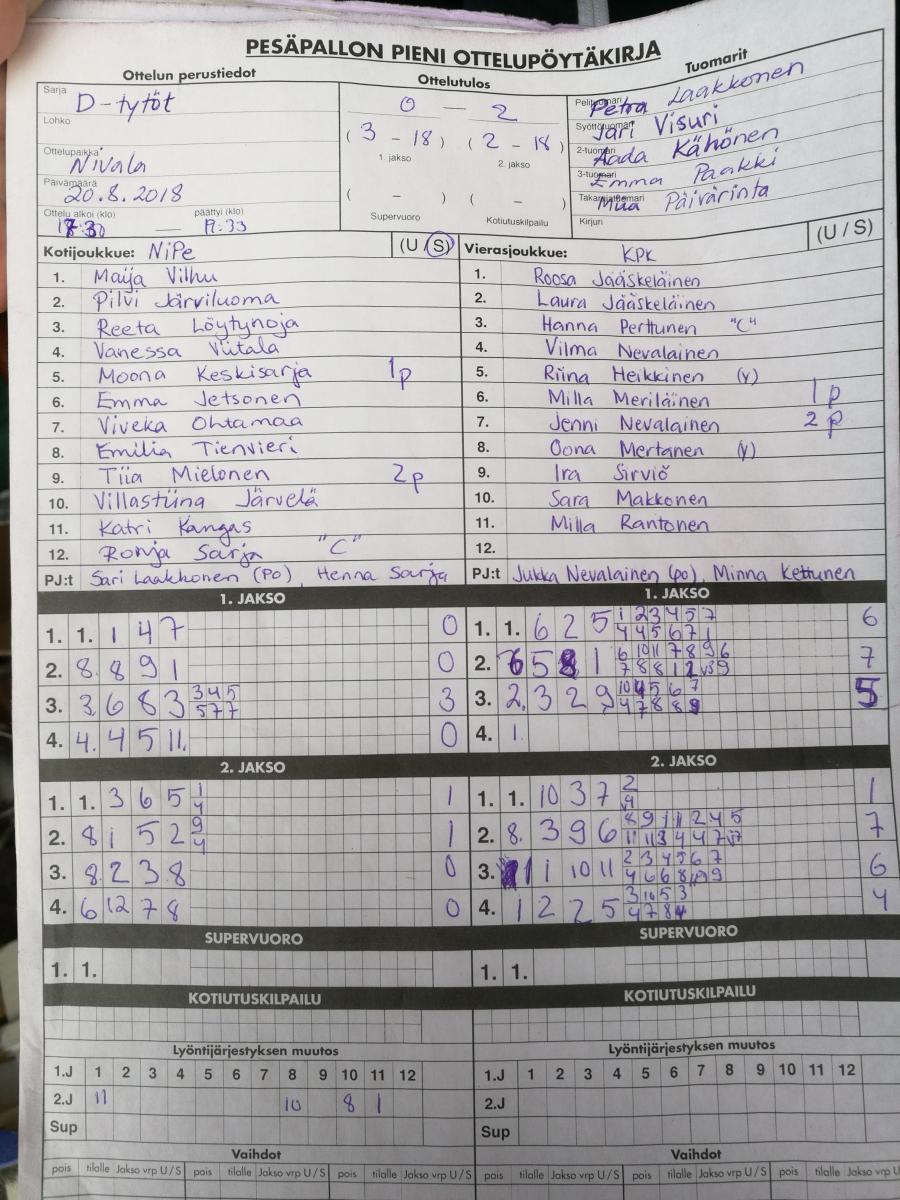 PESÄPALLON PIENI OTTELUPÖYTÄKIRJA
Ottelun perustiedot
Ottelutulos
Tuomarit
Sarja D-tytöt
Lohko
Ottelupaikka Nivala
Päivämäärä 20.8.2018
Ottelu alkoi (klo) päättyi (klo)
— 19:33
0 — 2
(3 - 18) (2 - 18)
1. jakso 2. jakso
( - ) ( - )
Supervuoro Kotiutuskilpailu
Pelituomari Petra Laakkonen
Syöttötuomari Jari Visuri
2-tuomari Aada Kähönen
3-tuomari Emma Paakki
Takarajatuomari Miia Päivärinta
Kirjuri
Kotijoukkue: NiPe (U / S)
1. Maija Vilhu
2. Pilvi Järviluoma
3. Reeta Löytynoja
4. Vanessa Viitala
5. Moona Keskisarja 1p
6. Emma Jetsonen
7. Viveka Ohtamaa
8. Emilia Tienvieri
9. Tiia Mielonen 2p
10. Villastiina Järvelä
11. Katri Kangas
12. Ronja Sarja "C"
PJ:t Sari Laakkonen (PO), Henna Sarja
Vierasjoukkue: KPK (U / S)
1. Roosa Jääskeläinen
2. Laura Jääskeläinen
3. Hanna Perttunen "C"
4. Vilma Nevalainen
5. Riina Heikkinen (v)
6. Milla Meriläinen 1p
7. Jenni Nevalainen 2p
8. Oona Mertanen (v)
9. Ira Sirviö
10. Sara Makkonen
11. Milla Rantonen
12.
PJ:t Jukka Nevalainen (po), Minna Kettunen
1. JAKSO
1. 1. 1 4 7 0
2. 8. 8 9 1 0
3. 3. 6 8 3 3 4 5 3
5 7 7
4. 4. 4 5 11. 0
1. JAKSO
1. 1. 6 2 5 1 2 3 4 5 7 6
4 4 5 6 7 1
2. 6 5 8 1 6 10 11 7 8 9 6 7
3. 2. 3 2 9 5
4. 1.
2. JAKSO
1. 1. 3 6 5 1 1
4
2. 8 1 5 2 9 1
4
3. 8. 2 3 8 0
4. 6 12 7 8 0
2. JAKSO
1. 1. 10 3 7 2 1
4
2. 8. 3 9 6 8 9 11 1 2 4 5 7
3. 1 10 11 2 3 4 5 6 7 6
4. 1 2 2 5 3 10 5 3 4
4 7 8
SUPERVUORO
1. 1.
SUPERVUORO
1. 1.
KOTIUTUSKILPAILU
KOTIUTUSKILPAILU
Lyöntijärjestyksen muutos
1.J 1 2 3 4 5 6 7 8 9 10 11 12
2.J 11 10 8 1
Sup
Lyöntijärjestyksen muutos
1.J 1 2 3 4 5 6 7 8 9 10 11 12
2.J
Sup
Vaihdot
pois tilalle Jakso vrp U / S pois tilalle Jakso vrp U / S pois tilalle Jakso vrp U / S
Vaihdot
pois tilalle Jakso vrp U / S pois tilalle Jakso vrp U / S pois tilalle Jakso vrp U